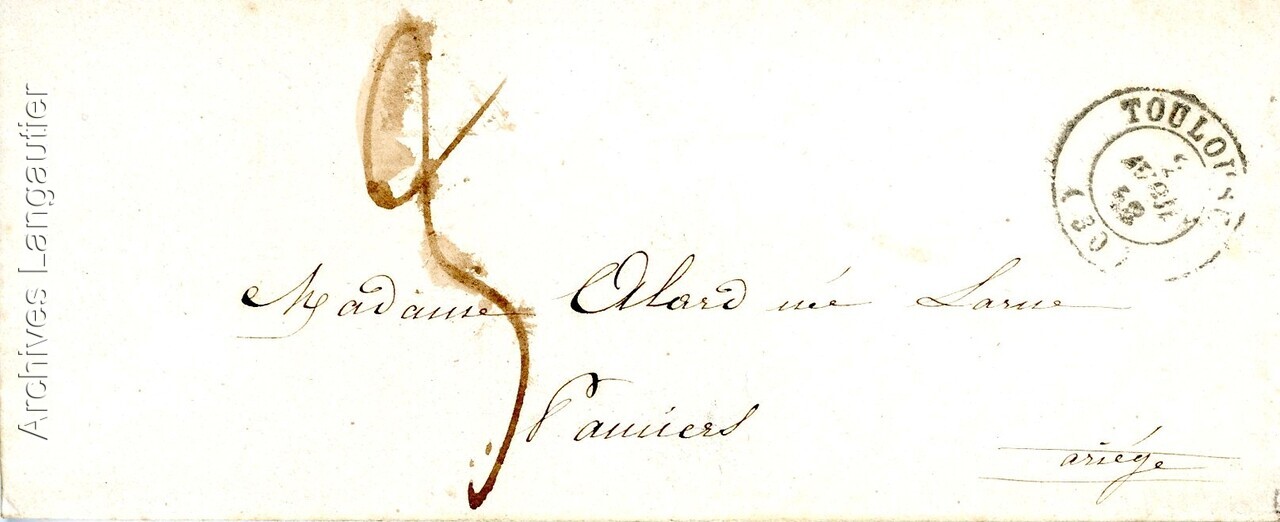 Archives Langautier
TOULOUSE
48
Madame Alard née Larue
Pamiers
ariége